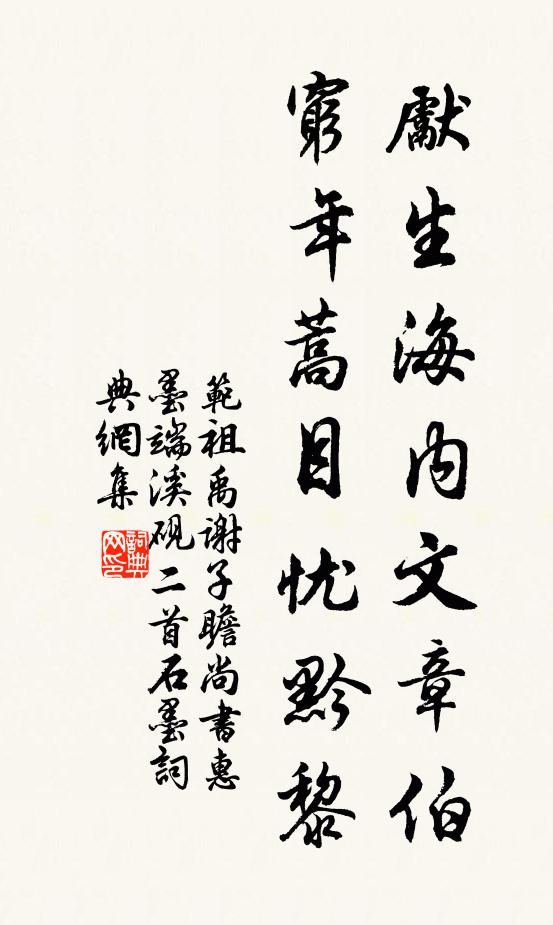 獻生海内文章伯
窮年蒿目忧黔黎
範祖禹谢子瞻尚書惠
墨端溪硯二首石墨詞
典網集
詞典
网印